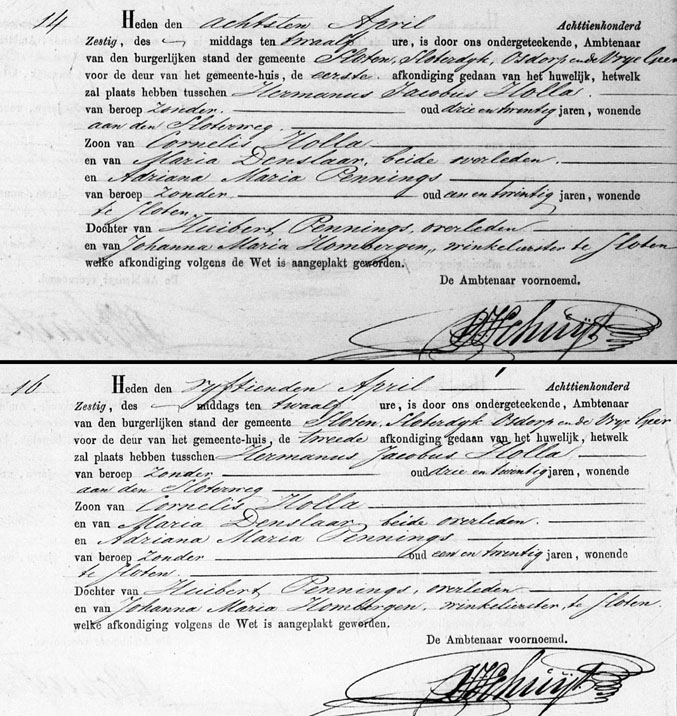 14 Heden den achtsten April Achttienhonderd
Zestig, des middags ten twaalf ure, is door ons ondergeteekende, Ambtenaar
van den burgerlijken stand der gemeente Sloten, Sloterdyk, Osdorp en de Vrye Geer
voor de deur van het gemeente-huis, de eerste afkondiging gedaan van het huwelijk, hetwelk
zal plaats hebben tusschen Hermanus Jacobus Holla
van beroep zonder oud drie en twintig jaren, wonende
aan den Sloterweg
Zoon van Cornelis Holla
en van Maria Denslaar, beide overleden
en Adriana Maria Pennings
van beroep zonder oud een en twintig jaren, wonende
te Sloten
Dochter van Huibert Pennings, overleden
en van Johanna Maria Hombergen, winkelierster te Sloten
welke afkondiging volgens de Wet is aangeplakt geworden.
De Ambtenaar voornoemd.
16 Heden den vyftienden April Achttienhonderd
Zestig, des middags ten twaalf ure, is door ons ondergeteekende, Ambtenaar
van den burgerlijken stand der gemeente Sloten, Sloterdyk Osdorp en de Vrye Geer
voor de deur van het gemeente-huis, de tweede afkondiging gedaan van het huwelijk, hetwelk
zal plaats hebben tusschen Hermanus Jacobus Holla
van beroep zonder oud drie en twintig jaren, wonende
aan den Sloterweg
Zoon van Cornelis Holla
en van Maria Denslaar, beide overleden.
en Adriana Maria Pennings
van beroep zonder oud een en twintig jaren, wonende
te Sloten.
Dochter van Huibert Pennings, overleden
en van Johanna Maria Hombergen, winkelierster, te Sloten.
welke afkondiging volgens de Wet is aangeplakt geworden.
De Ambtenaar voornoemd.